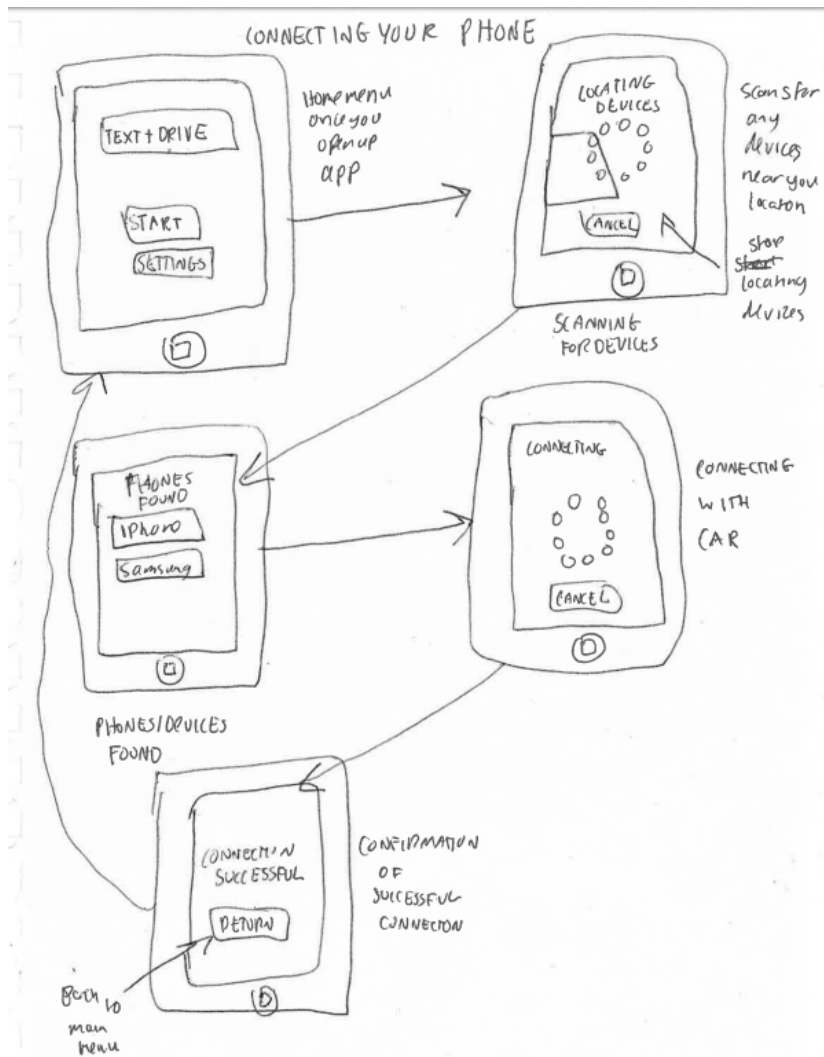 CONNECTING YOUR PHONE
TEXT + DRIVE
START
SETTINGS
Home menu
once you
open up
app
LOCATING
DEVICES
CANCEL
Scans for
any
devices
near you
locaton
stop
locating
devices
SCANNING
FOR DEVICES
PHONES
FOUND
Samsung
PHONES/DEVICES
FOUND
CONNECTING
CANCEL
CONNECTING
WITH
CAR
CONNECTION
SUCCESSFUL
RETURN
CONFIRMATION
OF
SUCCESSFUL
CONNECTON
to
main
menu